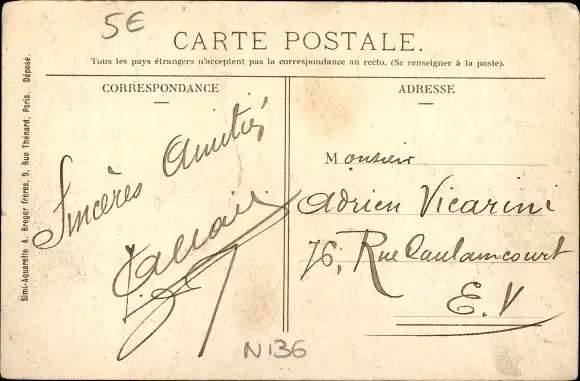 5E
CARTE POSTALE.
Tous les pays étrangers n'acceptent pas la correspondance au recto. (Se renseigner à la poste).
CORRESPONDANCE
Sincères Amitiés
ADRESSE
Monsieur
Adrien Vicarini
76, Rue Caulaincourt
E.V
N136
Simi-Aquarelle A. Breger frères, 9, Rue Thénard, Paris. Déposé.